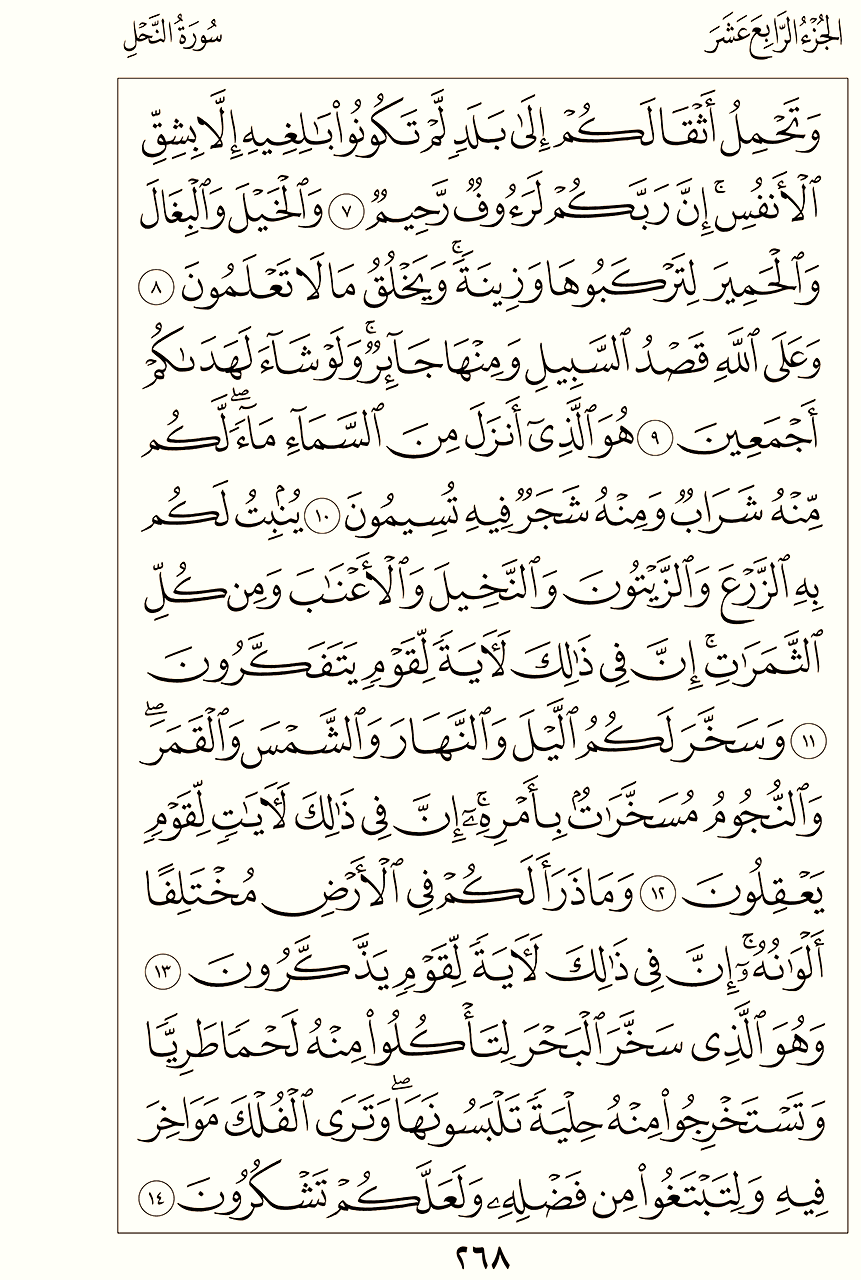 الجُزْءُ الرَّابِعَ عَشَرَ
سُورَةُ النَّحْلِ
وَتَحْمِلُ أَثْقَالَكُمْ إِلَىٰ بَلَدٍ لَّمْ تَكُونُوا۟ بَـٰلِغِيهِ إِلَّا بِشِقِّ
ٱلْأَنفُسِ ۚ إِنَّ رَبَّكُمْ لَرَءُوفٌ رَّحِيمٌ ٧ وَٱلْخَيْلَ وَٱلْبِغَالَ
وَٱلْحَمِيرَ لِتَرْكَبُوهَا وَزِينَةً ۚ وَيَخْلُقُ مَا لَا تَعْلَمُونَ ٨
وَعَلَى ٱللَّهِ قَصْدُ ٱلسَّبِيلِ وَمِنْهَا جَآئِرٌ ۚ وَلَوْ شَآءَ لَهَدَىٰكُمْ
أَجْمَعِينَ ٩ هُوَ ٱلَّذِىٓ أَنزَلَ مِنَ ٱلسَّمَآءِ مَآءً ۖ لَّكُم
مِّنْهُ شَرَابٌ وَمِنْهُ شَجَرٌ فِيهِ تُسِيمُونَ ١٠ يُنۢبِتُ لَكُم
بِهِ ٱلزَّرْعَ وَٱلزَّيْتُونَ وَٱلنَّخِيلَ وَٱلْأَعْنَـٰبَ وَمِن كُلِّ
ٱلثَّمَرَٰتِ ۚ إِنَّ فِى ذَٰلِكَ لَـَٔايَةً لِّقَوْمٍ يَتَفَكَّرُونَ
١١ وَسَخَّرَ لَكُمُ ٱلَّيْلَ وَٱلنَّهَارَ وَٱلشَّمْسَ وَٱلْقَمَرَ ۖ
وَٱلنُّجُومُ مُسَخَّرَٰتٌۢ بِأَمْرِهِۦٓ ۚ إِنَّ فِى ذَٰلِكَ لَـَٔايَـٰتٍ لِّقَوْمٍ
يَعْقِلُونَ ١٢ وَمَا ذَرَأَ لَكُمْ فِى ٱلْأَرْضِ مُخْتَلِفًا
أَلْوَٰنُهُۥٓ ۚ إِنَّ فِى ذَٰلِكَ لَـَٔايَةً لِّقَوْمٍ يَذَّكَّرُونَ ١٣
وَهُوَ ٱلَّذِى سَخَّرَ ٱلْبَحْرَ لِتَأْكُلُوا۟ مِنْهُ لَحْمًا طَرِيًّا
وَتَسْتَخْرِجُوا۟ مِنْهُ حِلْيَةً تَلْبَسُونَهَا ۖ وَتَرَى ٱلْفُلْكَ مَوَاخِرَ
فِيهِ وَلِتَبْتَغُوا۟ مِن فَضْلِهِۦ وَلَعَلَّكُمْ تَشْكُرُونَ ١٤
٢٦٨